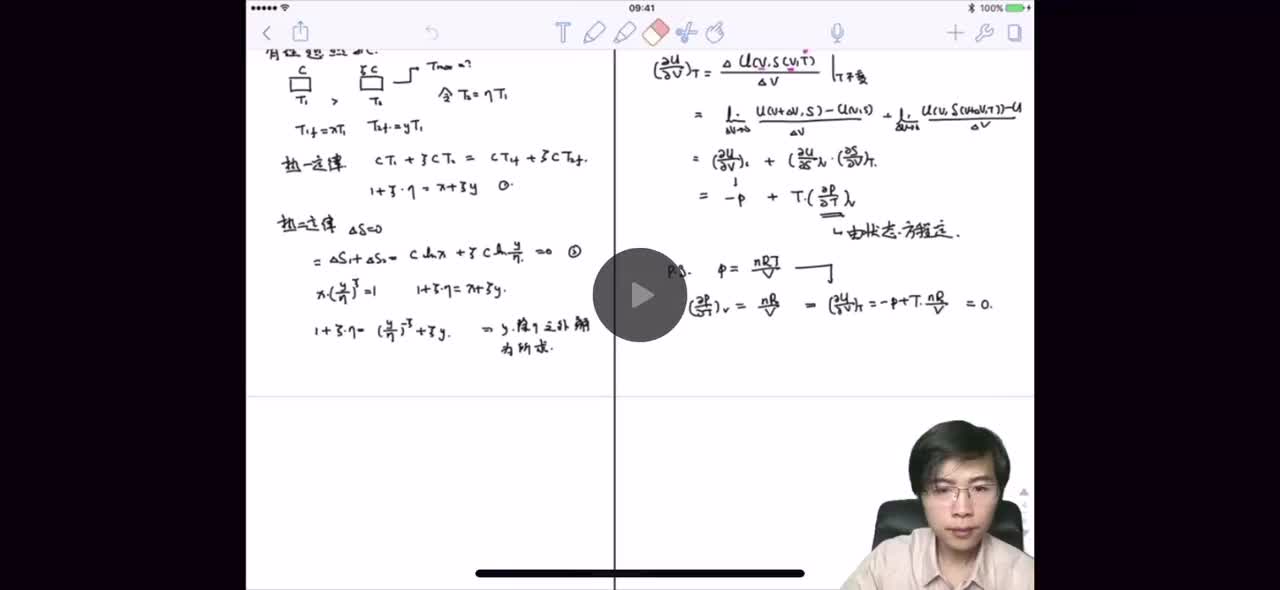 09:41
100%
T
C ζC Tmax=?
T₁ > T₂ 令 T₂=ηT₁
T₁f=xT₁ T₂f=yT₁
热一定律 CT₁+ζCT₂ = CT₁f+ζCT₂f.
1+ζ·η = x+ζy ①
热二定律 ΔS=0
= ΔS₁+ΔS₂ = C ln x + ζ C ln y/η = 0 ②
x·(y/η)^ζ=1 1+ζ·η=x+ζy.
1+ζ·η= (y/η)^-ζ+ζy. ⇒ y.除η之外解
为所求.
(∂U/∂V)_T = Δ U(V,S(V,T))/ΔV |T不变
= lim ΔV→0 U(V+ΔV,S)-U(V,S)/ΔV + lim ΔV→0 U(V,S(V+ΔV,T))-U/ΔV
= (∂U/∂V)_S + (∂U/∂S)_V·(∂S/∂V)_T.
= -p + T·(∂p/∂T)_V
↳由状态方程定.
P.S. p = nRT/V
(∂p/∂T)_V = nR/V ⇒ (∂U/∂V)_T = -p+T·nR/V = 0.